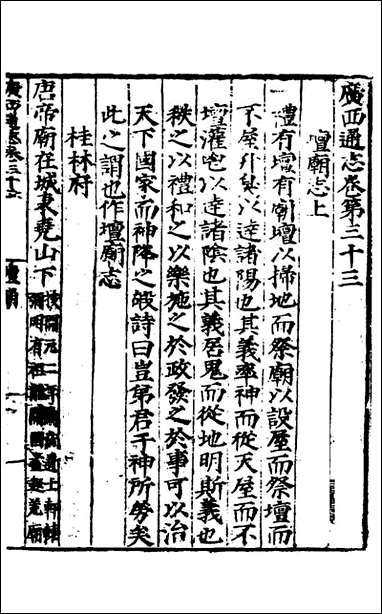 廣西通志卷第三十三
壇廟志上
禮有壇有廟壇以掃地而祭廟以設屋而祭壇而
不屋升臭以達諸陽也其義率神而從天屋而不
壇灌鬯以達諸陰也其義居鬼而從地明斯義也
秩之以禮和之以樂施之於政發之於事可以治
天下國家而神降之嘏詩曰豈弟君子神所勞矣
此之謂也作壇廟志
桂林府
唐帝廟在城東堯山下
廣西通志卷三十三
壇廟
一